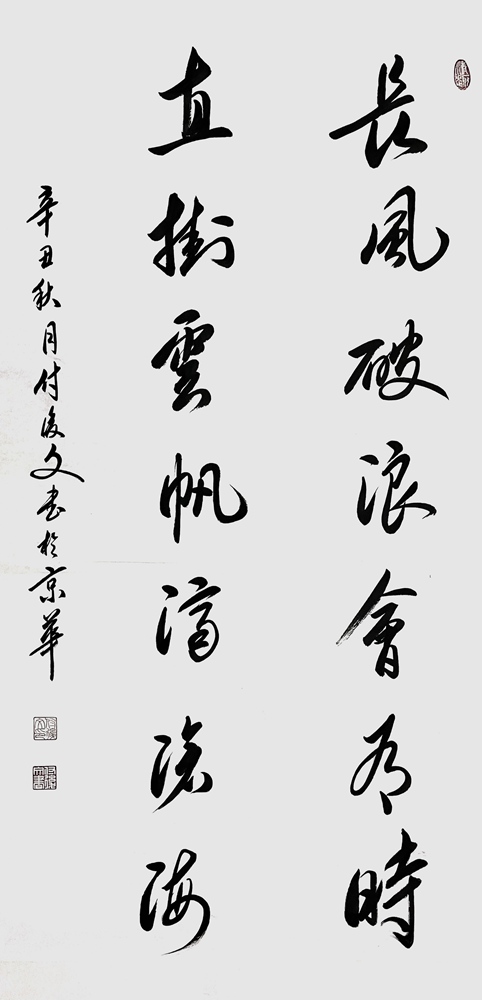 長風破浪會有時
直掛雲帆濟滄海
辛丑秋月付俊文书於京華